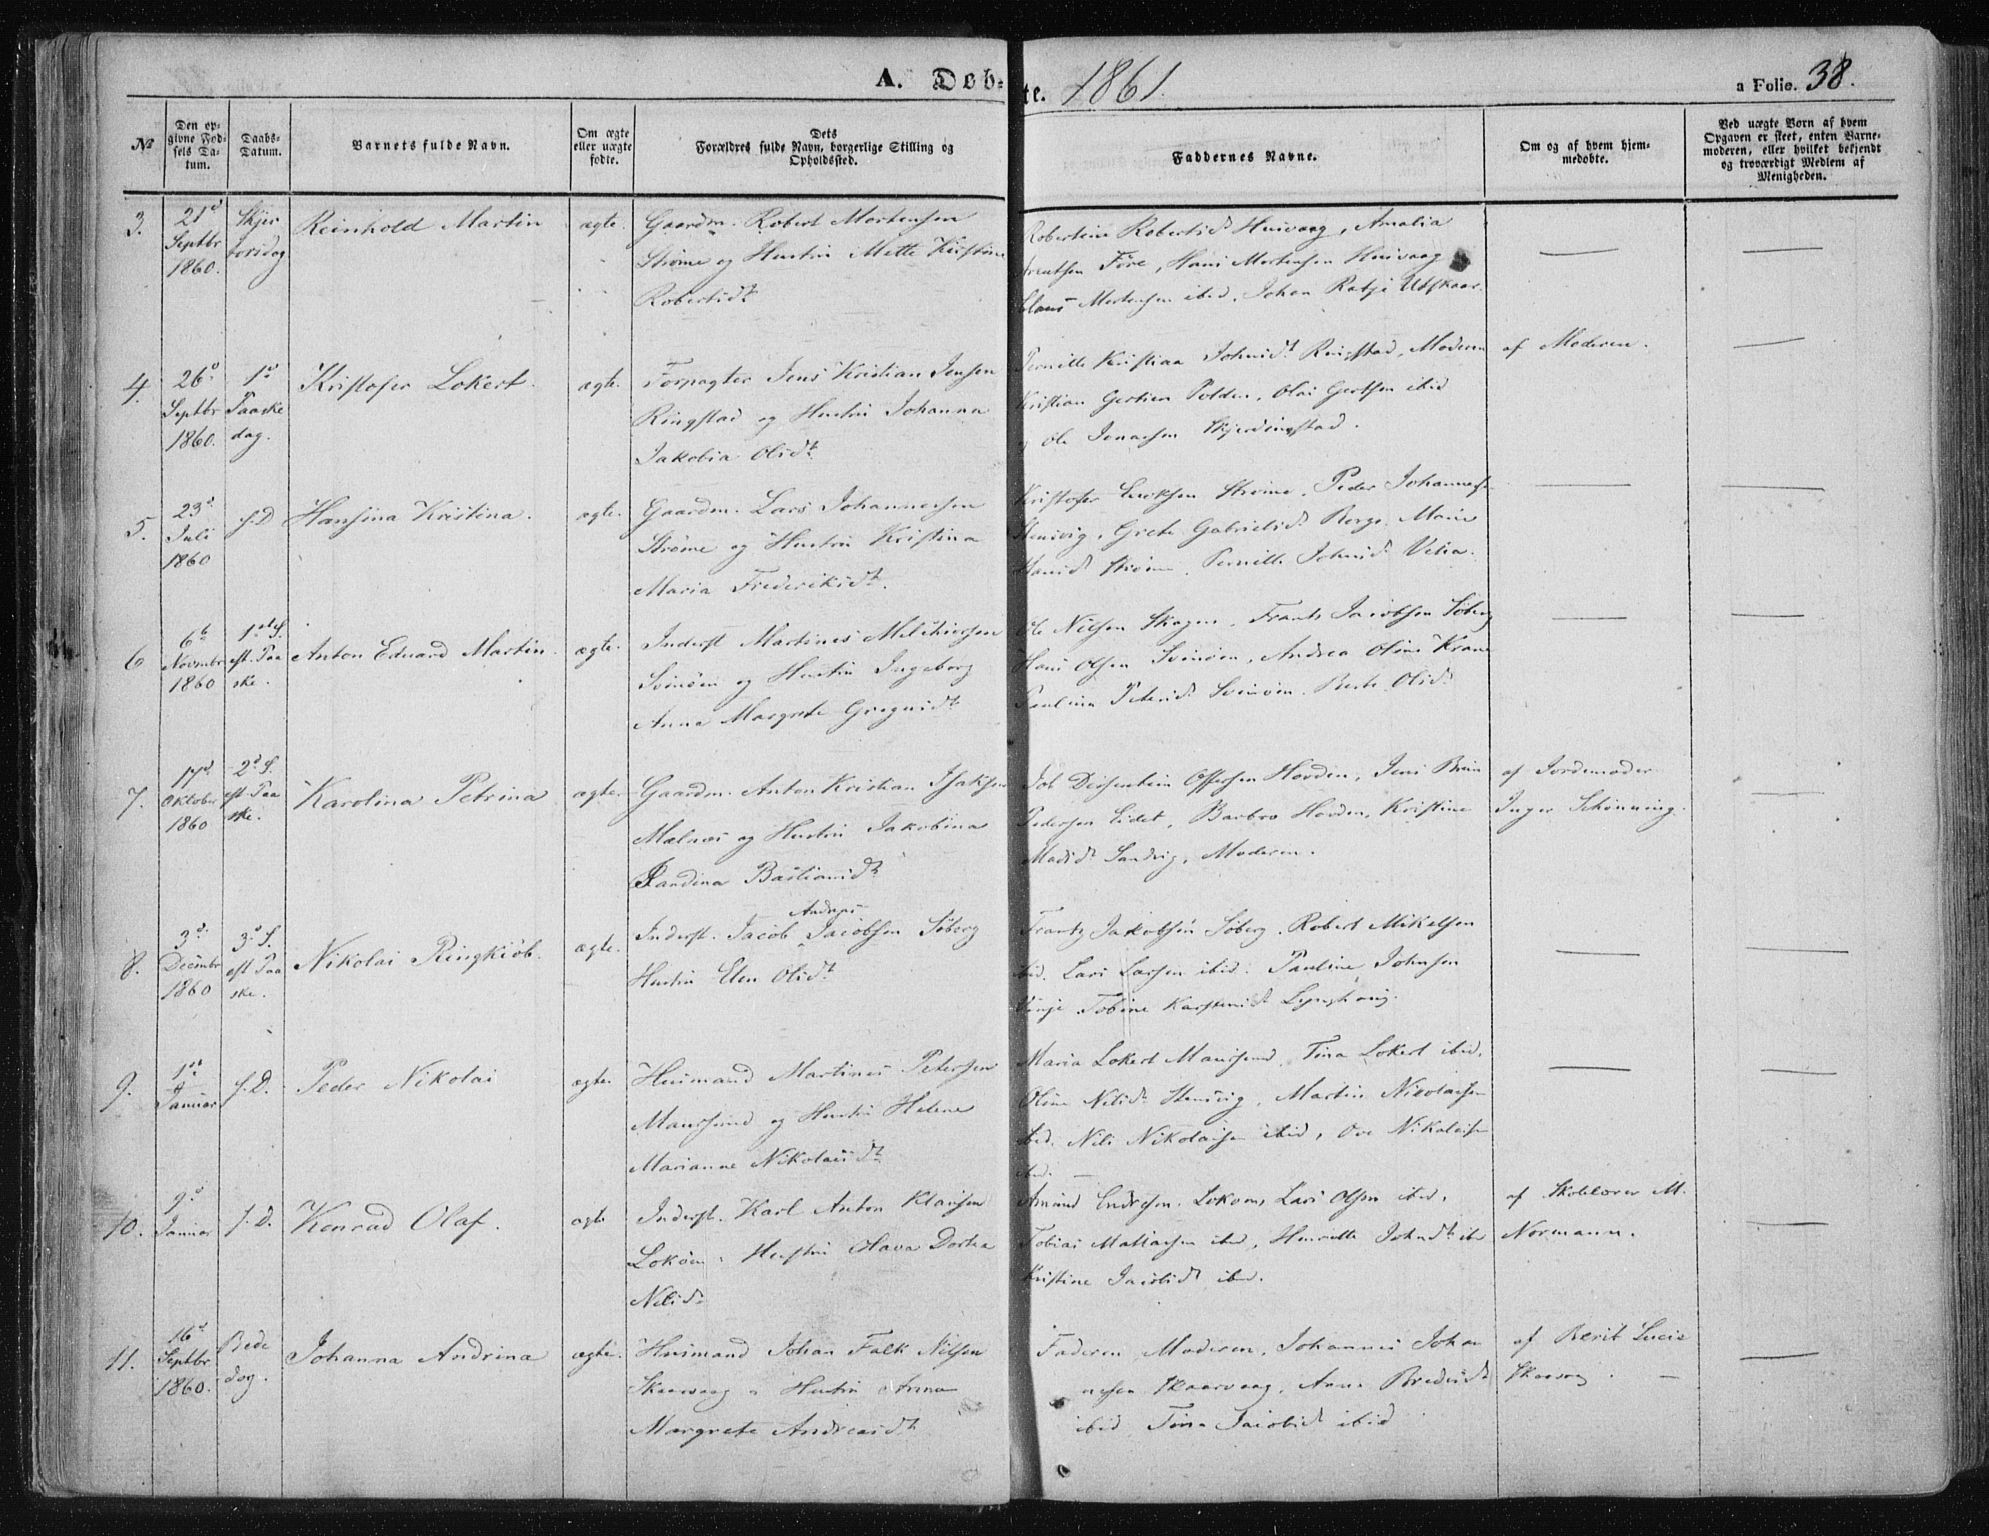 A. Døbte. 1861. a Folio. 38.
No
Den opgivne Fødsels Datum.
Daabs-Datum.
Barnets fulde Navn.
Om ægte eller uægte fødte.
Dets Forældres fulde Navn, borgerlige Stilling og Opholdssted.
Faddernes Navne.
Om og af hvem hjemmedøbte.
Ved uægte Børn af hvem Opgaven er skeet, enten Barnemoderen, eller hvilket bekjendt og troværdigt Medlem af Menigheden.
3. 21d Septbr 1860. Skjertorsdag Reinhold Martin ægte.
Gaardm. Robert Mortensen
Strøme og Hustru Mette Kirstine
Robertsdt
Robertine Robertsdt Husvaag, Amalia
Arentsen Føre, Hans Mortensen Husvaag
Claus Mortensen ibid, Johan Ratje Utskaar.
4. 26d Septbr 1860. 1d Paaskedag. Kristofer Lokert. ægte.
Forpagter Jens Kristian Jensen
Ringstad og Hustru Johanna
Jakobia Olsdt
Pernille Kristina Johnsdt Ringstad, Moderen
Kristian Gertsen Polden, Olai Gertsen ibid
og Ole Jonasen Skjerdingstad.
af Moderen.
5. 23d Juli 1860 s. D Hansina Kristina. ægte.
Gaardm. Lars Johannessen
Strøme og Hustru Kristina
Maria Frederiksdt.
Kristofer Eriksen Strøme, Peder Johannesen
Stensvig, Grete Gabrielsdt Borge, Marie
Hansdt Strøme, Pernille Johnsdt Vetia.
6 6te Novmbr 1860 1ste S. eft. Paaske. Anton Eduard Martin. ægte.
Inderst Martines Melkiorsen
Svinøen og Hustru Ingeborg
Anne Margrete Gregusdt
Ole Nilsen Skagen, Frants Jacobsen Søberg
Hans Olsen Svinøen, Andrea Oline Krane
Paulina Petersdt Svinøen, Berte Olsdt
7. 17d Oktober 1860 2d S. eft. Paaske. Karolina Petrina ægte
Gaardm. Anton Kristian Isaksen
Malnes og Hustru Jakobina
Randina Bastiansdt
Job Dirsentein Offersen Hovden, Jens Brun
Pedersen Eidet, Barbro Hovden, Kristine
Madsdt Sandvig, Moderen.
af Jordemoder
Inger Schønning.
8. 3d Decmbr 1860 3d S. eft. Paaske. Nikolai Ringkiøb. ægte.
Andreas
Inderst. Jacob Jacobsen Søberg
Hustru Elen Olsdt
Frantz Jakobsen Søberg, Robert Mikelsen
ibid. Lars Larsen ibid. Pauline Johnsen
Vinje Tobine Karstensdt Lynghaug.
9. 1ste Januar s. D. Peder Nikolai ægte.
Husmand Martines Petersen
Maursund og Hustru Helene
Marianne Nikolaisdt
Maria Lokert Maursund, Tina Lokert ibid,
Oline Nilsdt Stensvig, Martin Nicolaisen
ibid. Nils Nikolaisen ibid, Ove Nikolaisen
ibid.
10. 9d Januar s. D. Konrad Olaf. ægte
Inderst. Karl Anton Klausen
Lokøen, Hustru Olava Dortea
Nilsdt
Amund Endresen Lokøen, Lars Olsen ibid,
Tobias Matiasen ibid, Henrette Johnsdt ibid
Kristine Jacobsdt ibid.
af Skolelærer M.
Normann.
11. 16d Septbr 1860. Bededag. Johanna Andrina ægte.
Husmand Johan Falk Nilsen
Skaarvaag, Hustru Anna
Margrete Andreasdt.
Faderen, Moderen, Johannes Johan
nesen Skaarvaag, Anne Bredesdt
ibid Tina Jacobsdt ibid
af Berit Lucie
Skaarvag.